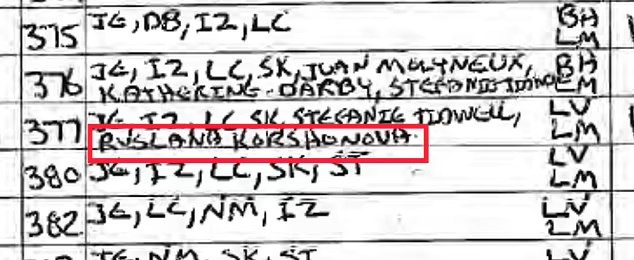 375 JE, DB, IZ, LC BH
LM
376 JE, IZ, LC, SK, JUAN MOLYNEUX, BH
KATHERINE DARBY, STEFANIE TIDWELL LM
377 JE, IZ, LC, SK, STEFANIE TIDWELL, LV
RUSLANA KORSHONOVA LM
380 JE, IZ, LC, SK, ST LV
LM
382 JE, LC, NM, IZ LV
LM
JE, NM, SK, ST LV